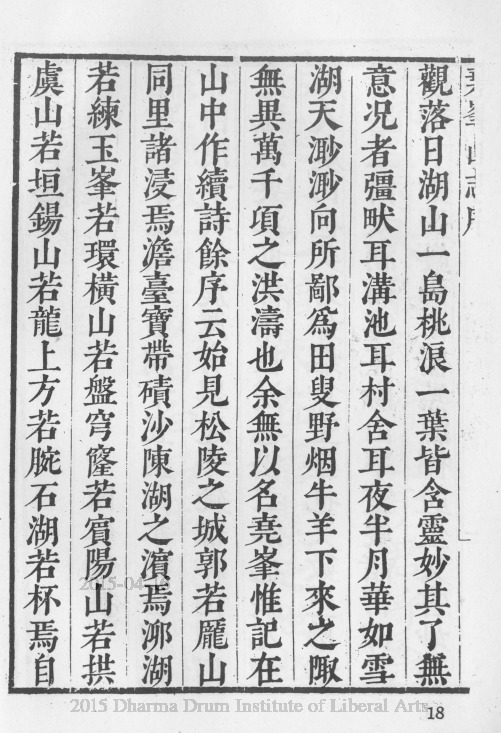 觀落日湖山一島桃浪一葉皆含靈妙其了無
意况者彊畎耳溝池耳村舍耳夜半月華如雪
湖天渺渺向所鄙爲田叟野烟牛羊下來之陬
無異萬千項之洪濤也余無以名堯峯惟記在
山中作續詩餘序云始見松陵之城郭若龐山
同里諸浸焉澹臺寶帶磧沙陳湖之濵焉泖湖
若練玉峯若環橫山若盤穹窿若賓陽山若拱
虞山若垣錫山若龍上方若腕石湖若杯焉自
2015 Dharma Drum Institute of Liberal Arts
18